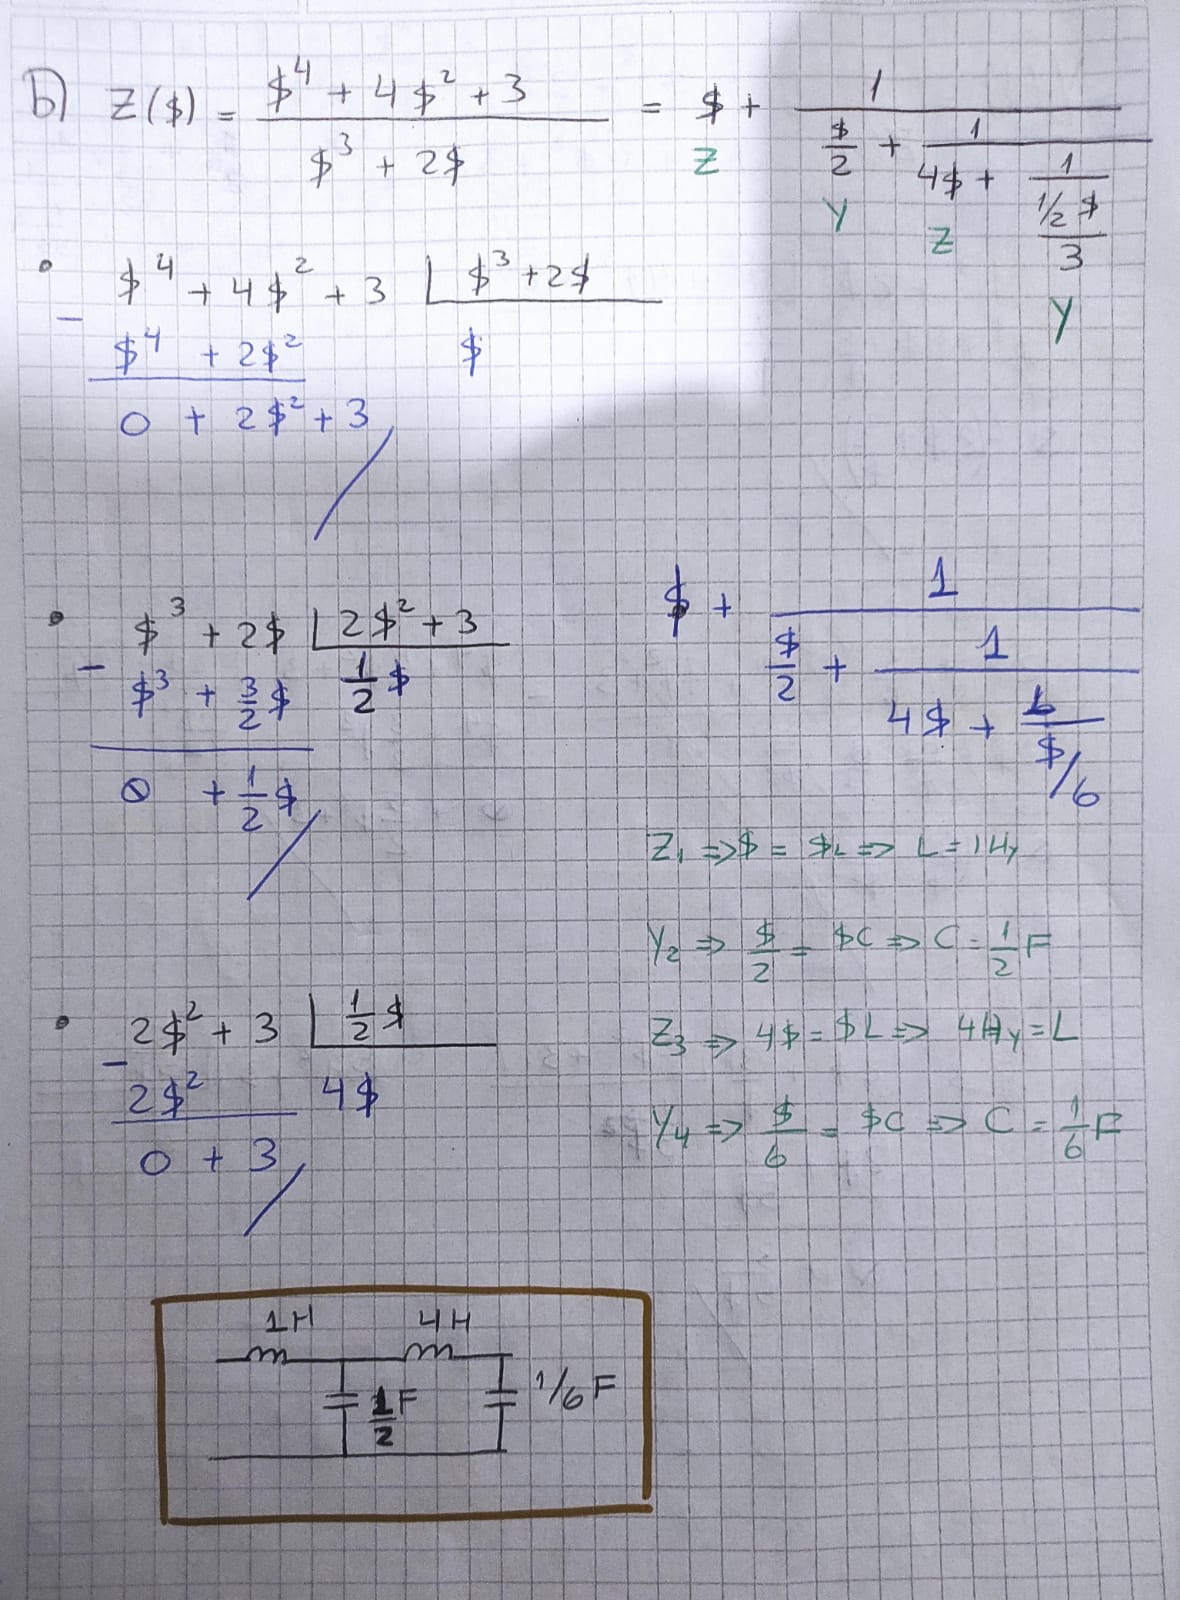 b) Z($) = $⁴ + 4$² + 3 / $³ + 2$ = $ + 1 / ($/2 + 1 / (4$ + 1 / (1/2 $ / 3)))
Z Y Z Y
• $⁴ + 4$² + 3 | $³ + 2$
− $⁴ + 2$² $
0 + 2$² + 3
• $³ + 2$ | 2$² + 3
− $³ + 3/2 $ 1/2 $
0 + 1/2 $
• 2$² + 3 | 1/2 $
− 2$² 4$
0 + 3
$ + 1 / ($/2 + 1 / (4$ + 1 / ($/6)))
Z₁ => $ = $L => L = 1Hy
Y₂ => $/2 = $C => C = 1/2 F
Z₃ => 4$ = $L => 4Hy = L
Y₄ => $/6 = $C => C = 1/6 F
1H 4H
1/2 F 1/6 F